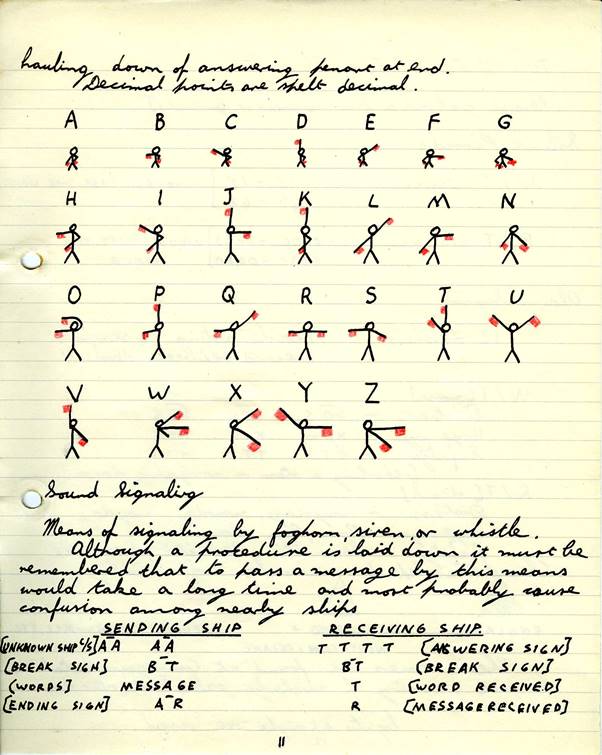 hauling down of answering penant at end.
Decimal points are spelt decimal.
A B C D E F G
H I J K L M N
O P Q R S T U
V W X Y Z
Sound Signaling
Means of signaling by foghorn, siren, or whistle.
Although a procedure is laid down it must be
remembered that to pass a message by this means
would take a long time and most probably cause
confusion among nearby ships
SENDING SHIP RECEIVING SHIP.
[UNKNOWN SHIP C/S] A̅A̅ A̅A̅ T T T T [ANSWERING SIGN]
[BREAK SIGN] B̅T̅ B̅T̅ [BREAK SIGN]
[WORDS] MESSAGE T [WORD RECEIVED]
[ENDING SIGN] A̅R̅ R [MESSAGE RECEIVED]
11